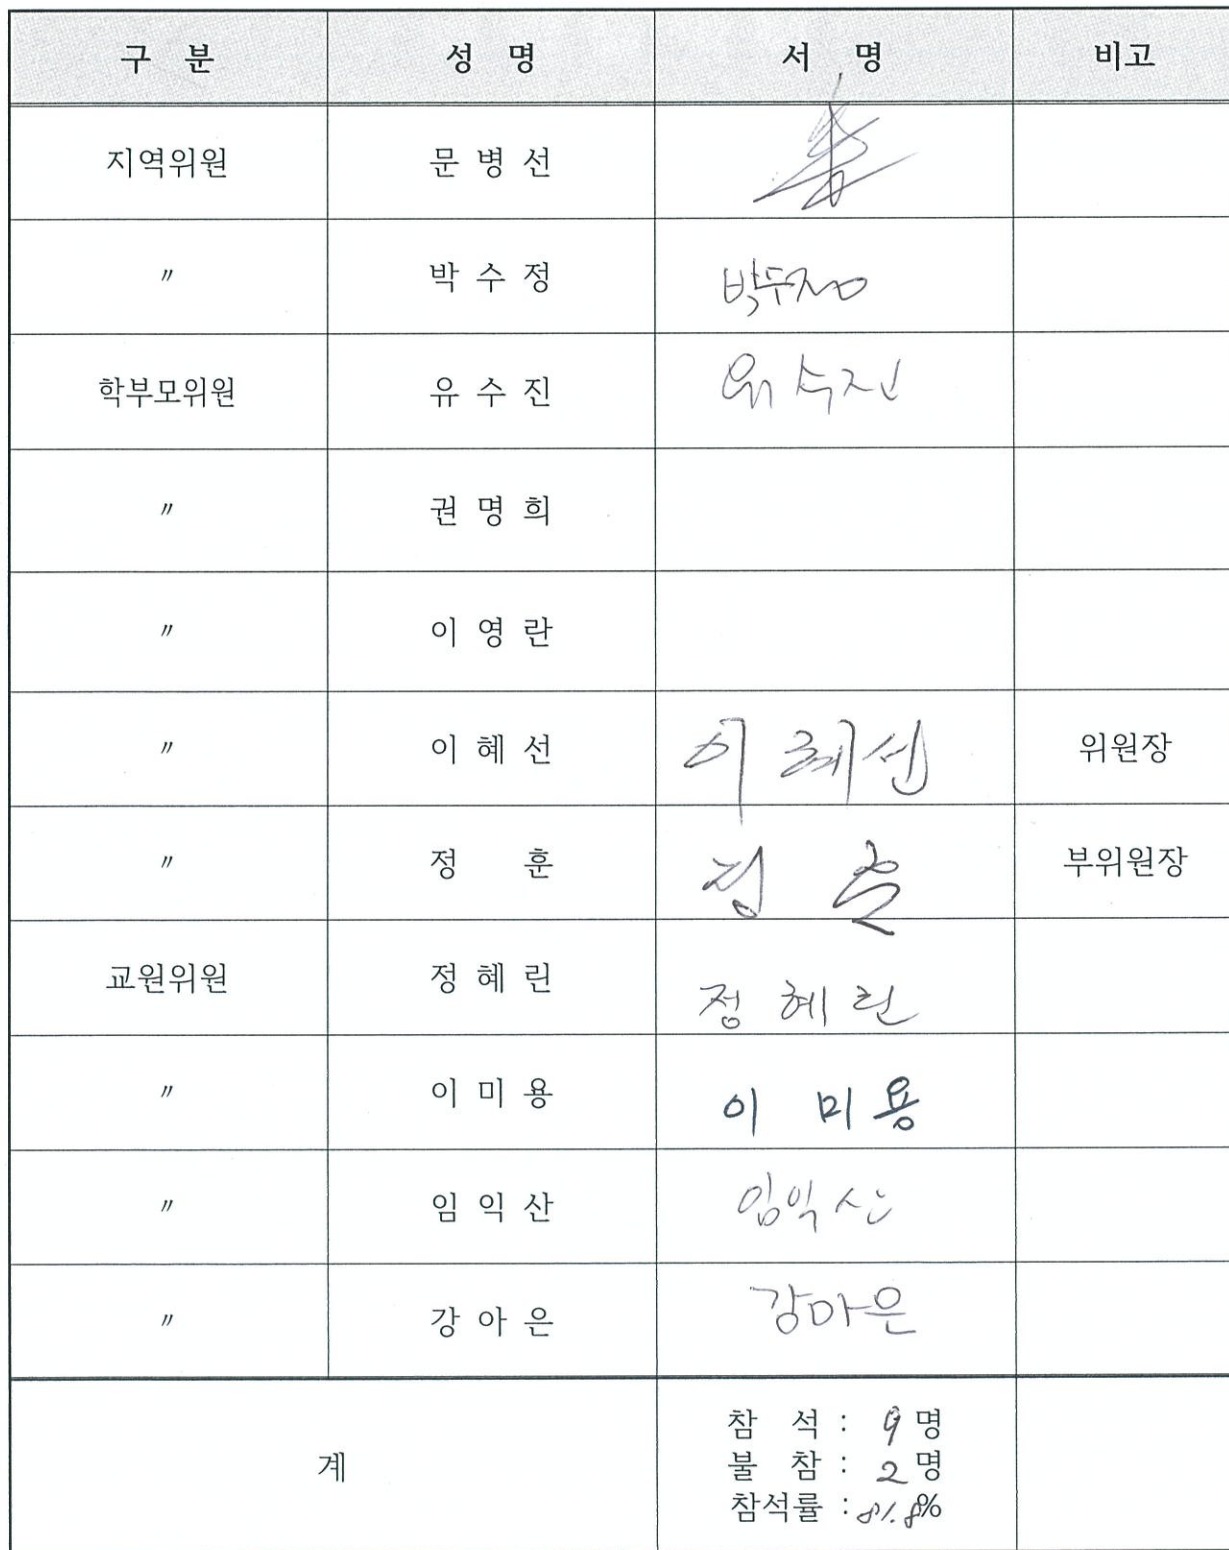 구 분 성 명 서 명 비고
지역위원 문 병 선
〃 박 수 정 박수정
학부모위원 유 수 진 유수진
〃 권 명 희
〃 이 영 란
〃 이 혜 선 이 혜 선 위원장
〃 정 훈 정 훈 부위원장
교원위원 정 혜 린 정 혜 린
〃 이 미 용 이 미 용
〃 임 익 산 임익산
〃 강 아 은 강아은
계
참 석 : 9 명
불 참 : 2 명
참석률 : 81.8%